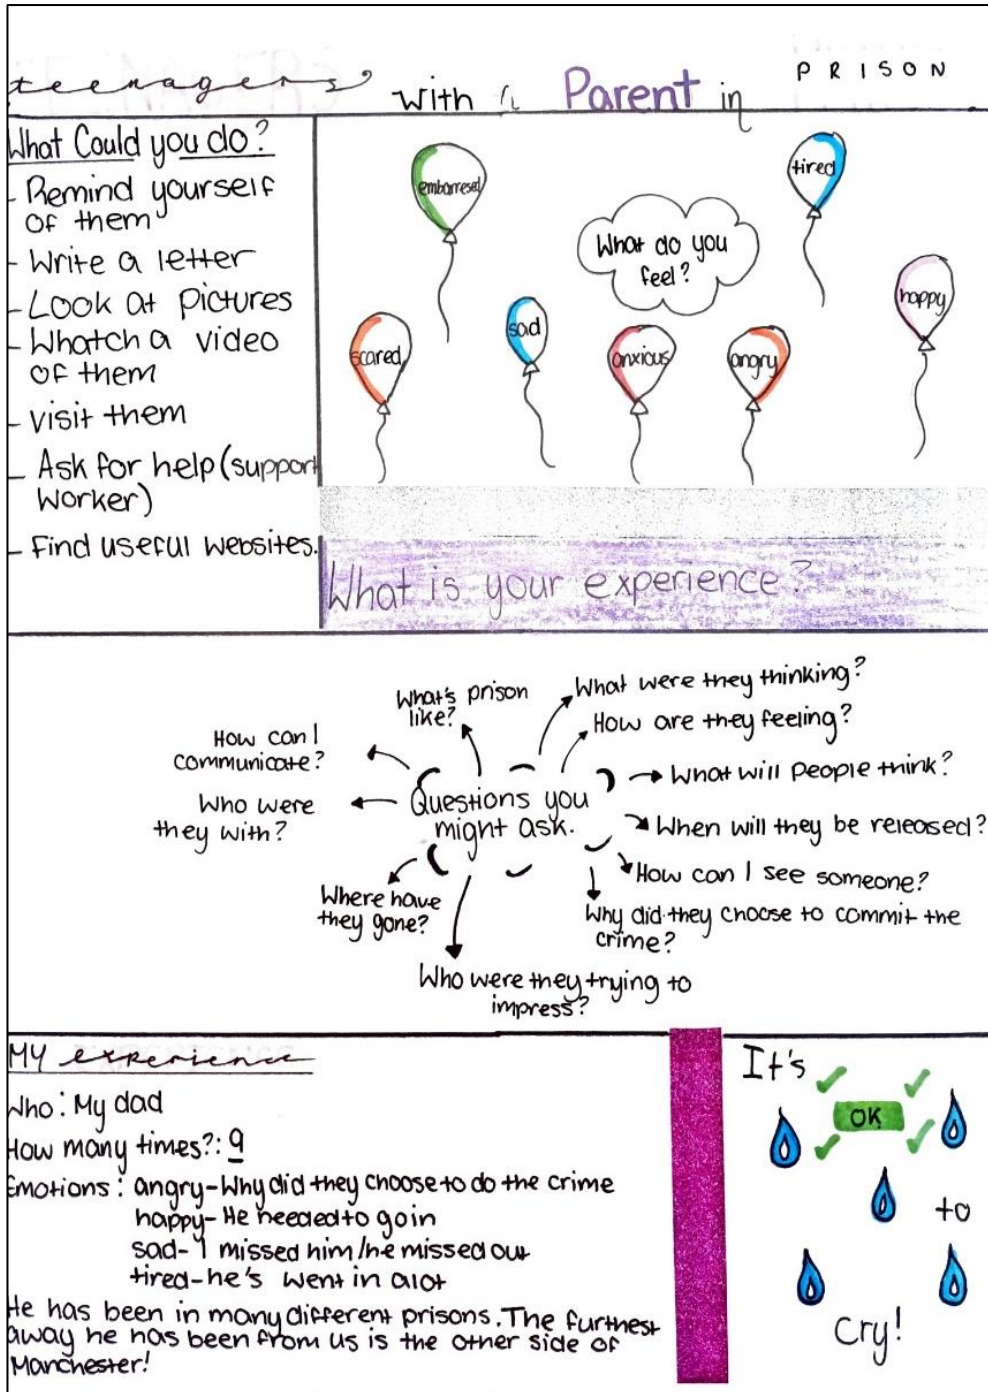 teenagers' with a Parent in PRISON
What Could you do?
- Remind yourself
of them
- Write a letter
- Look at pictures
- Whatch a video
of them
- visit them
- Ask for help (support
worker)
- Find useful websites.
embarresed
tired
What do you
feel?
happy
scared
sad
anxious
angry
What is your experience?
What's prison
like?
What were they thinking?
How are they feeling?
How can I
communicate?
What will people think?
Who were
they with?
Questions you
might ask.
When will they be released?
How can I see someone?
Where have
they gone?
Why did they choose to commit the
crime?
Who were they trying to
impress?
MY experience
Who: My dad
How many times?: 9
Emotions: angry-Why did they choose to do the crime
happy- He needed to go in
sad- I missed him/he missed out
tired-he's went in alot
He has been in many different prisons. The furthest
away he has been from us is the other side of
Manchester!
It's
OK
to
Cry!